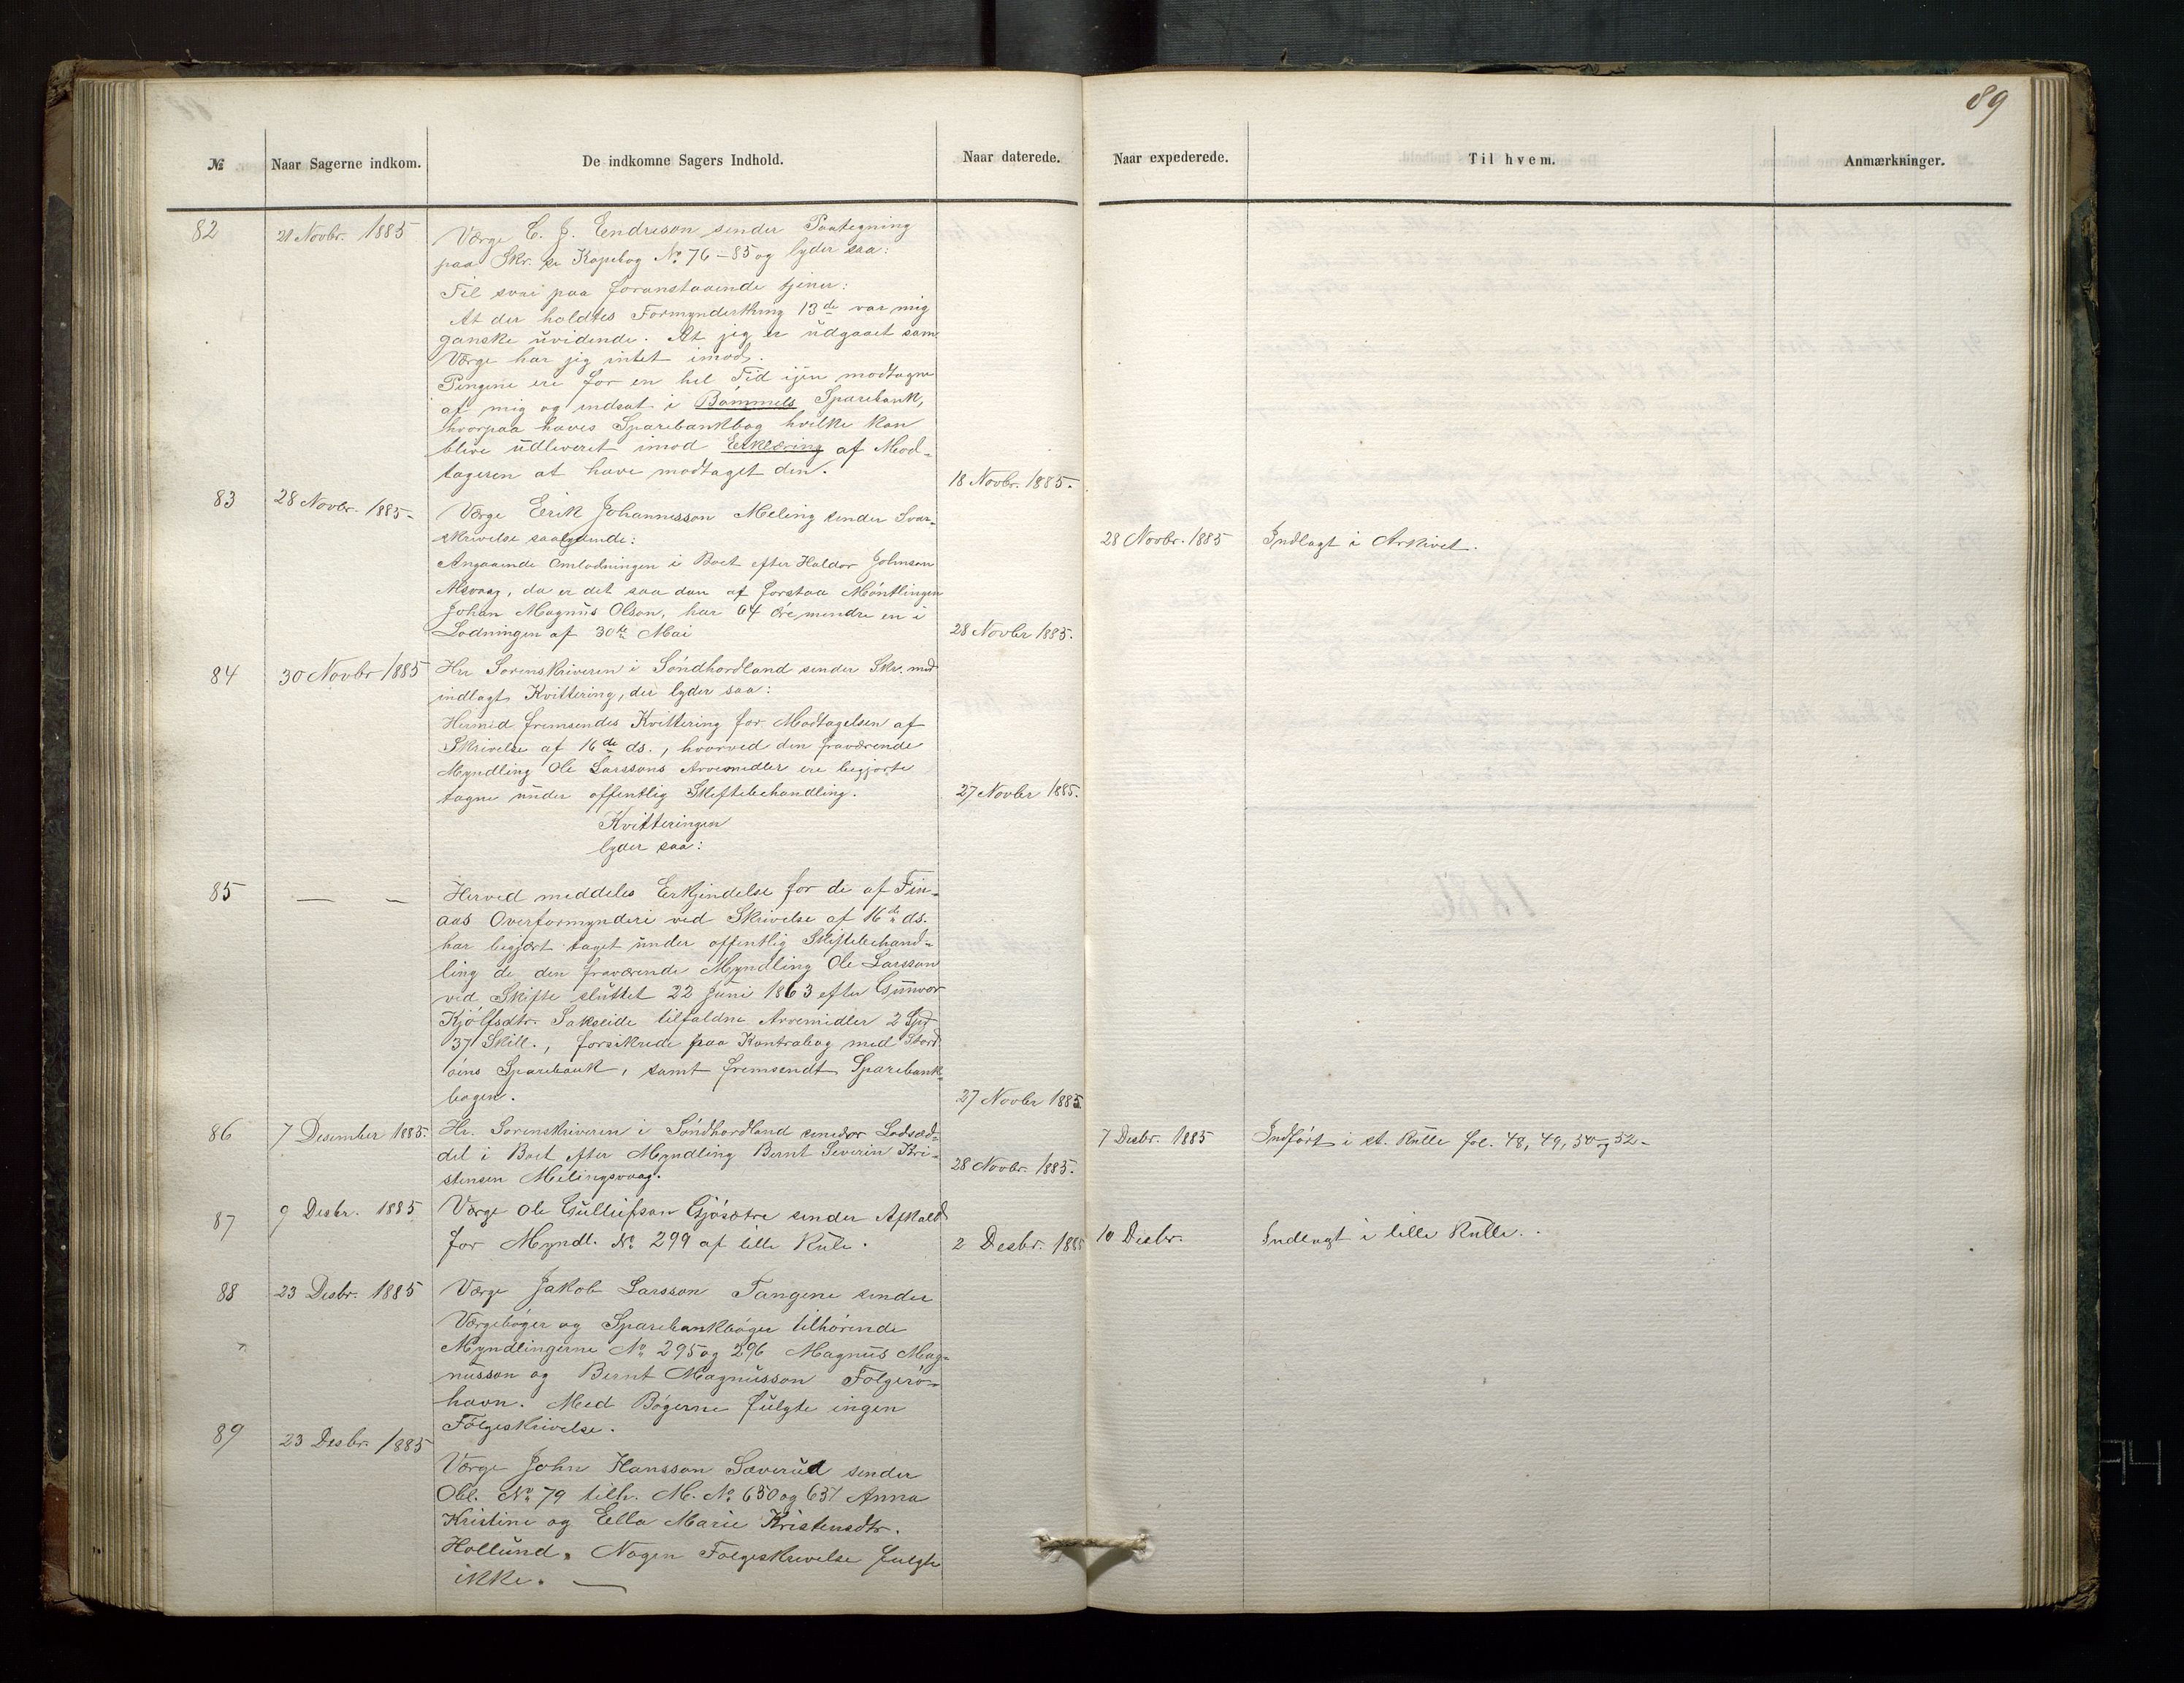 89
№ Naar Sagerne indkom. De indkomne Sagers Indhold. Naar daterede. Naar expederede. Til hvem. Anmærkninger.
82 21 Novbr. 1885 Værge C. J. Endreson sender Paategning
paa Skr. se Kopebog No 76-85 og lyder saa:
Til svar paa foranstaaende tjener:
At der holdtes Formynderthing 13de var mig
ganske uvidende. At jeg er udgaaet som
Værge har jeg intet imod.
Pengene ere for en hel Tid ijen modtagne
af mig og indsat i Bømmels Sparebank,
hvorpaa haves Sparebankbog hvilke kan
blive udleveret imod Erklæring af Mod-
tageren at have modtaget den. 18 Novbr. 1885.
83 28 Novbr. 1885- Værge Eerik Johannesson Meling sender Svar-
skrivelse saalydende: 28 Novbr. 1885 Indlagt i Arkivet.
Angaaende Omlodningen i Boet efter Haldor Johnson
Mevaag, da er det saa dan at forstaa Møntlingen
Johan Magnus Olson, har 64 Øre mendre en i
Lodningen af 30te Mai 28 Novbr 1885.
84 30 Novbr 1885 Hr Sorenskriveren i Søndhordland sender Skr. med
indlagt Kvittering, der lyder saa:
Hermed fremsendes Kvittering for Modtagelsen af
Skrivelse af 16de ds., hvorved den fraværende
Myndling Ole Larssons Arvemidler ere begjærte
tagne under offentlig Skiftebehandling. 27 Novbr 1885.
Kvitteringen
lyder saa:
85 — — Herved meddeles Erkjendelse for de af Fin-
aas Overformynderi ved Skrivelse af 16de ds.
har begjært taget under offentlig Skiftebehand-
ling de den fraværende Myndling Ole Larsson
ved Skifte sluttet 22 Juni 1863 efter Gunvor
Kjølfsdtr. Sakseide tilfaldne Arvemidler 2 Spd
37 Skill., forsikrede paa Kontrabog med Stord
øens Sparebank, samt fremsendt Sparebank-
bogen. 27 Novbr 1885.
86 7 Desember 1885. Hr. Sorenskriveren i Søndhordland sender Lodsed-
del i Boet efter Myndling Bernt Severin Kri-
stensen Melingsvaag. 28 Novbr. 1885. 7 Desbr. 1885 Indført i st. Rulle fol. 48, 49, 50 og 52-
87 9 Desbr. 1885 Værge Ole Gulleifson Gjøsætre sender Afkald
for Myndl. No 299 af lille Rule. 2 Desbr. 1885 10 Desbr. Indlagt i lille Rulle.
88 23 Desbr. 1885 Værge Jakob Larsson Tangene sender
Værgebøger og Sparebankbøger tilhørende
Myndlingerne No 295 og 296 Magnus Mag-
nusson og Bernt Magnusson Folgerø-
havn. Med Bøgerne fulgte ingen
Følgeskrivelse.
89 23 Desbr. 1885 Værge John Hansson Sæverud sender
Obl. No 79 tilh. M. No 650 og 651 Anna
Kristine og Ella Marie Kristensdtr.
Hollund. Nogen Følgeskrivelse fulgte
ikke. —